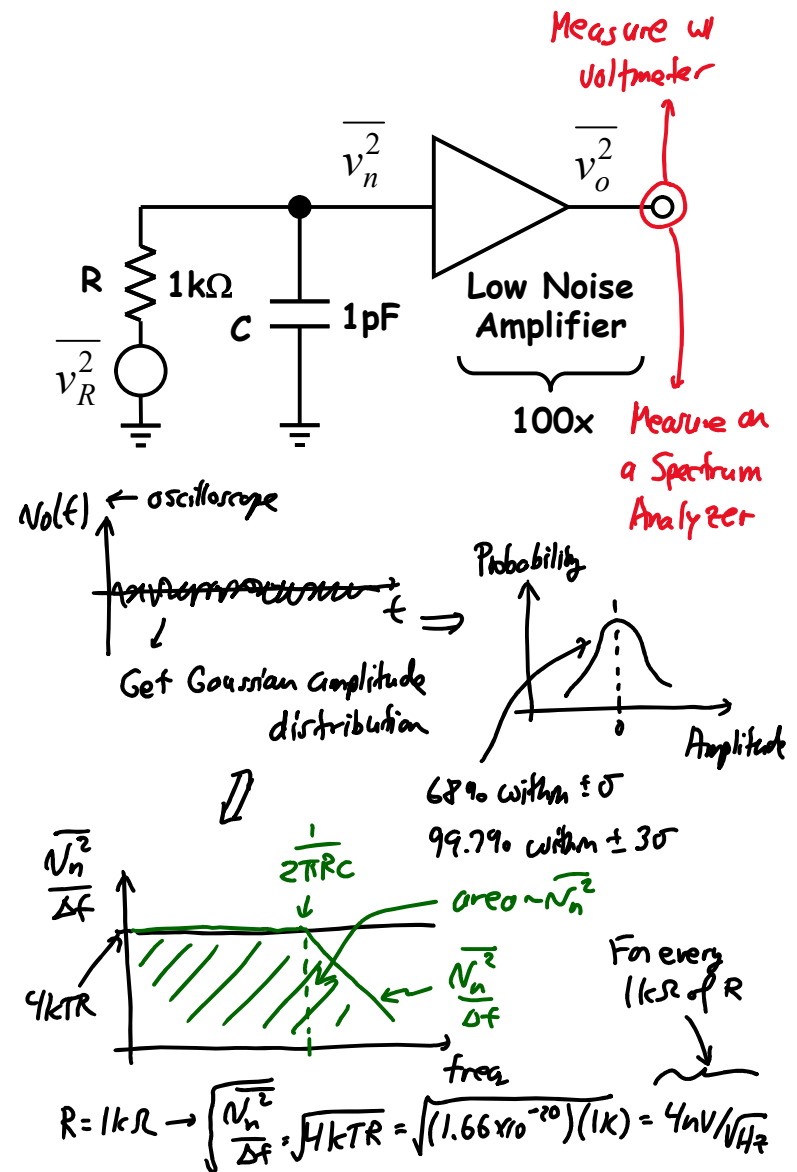 Measure w/
voltmeter
$\overline{v_n^2}$
$\overline{v_o^2}$
R
1kΩ
C
1pF
$\overline{v_R^2}$
Low Noise
Amplifier
100x
Measure on
a Spectrum
Analyzer
N_o(t) ← oscilloscope
t ⇒
Get Gaussian amplitude
distribution
Probability
0
Amplitude
68% within ±σ
99.7% within ±3σ
$\frac{\overline{N_n^2}}{\Delta f}$
$\frac{1}{2\pi RC}$
area ~ $\overline{N_n^2}$
4kTR
$\frac{\overline{N_n^2}}{\Delta f}$
freq
For every
1kΩ of R
R = 1kΩ → $\sqrt{\frac{\overline{N_n^2}}{\Delta f}} = \sqrt{4kTR} = \sqrt{(1.66×10^{-20})(1K)}$ = 4nV/√Hz